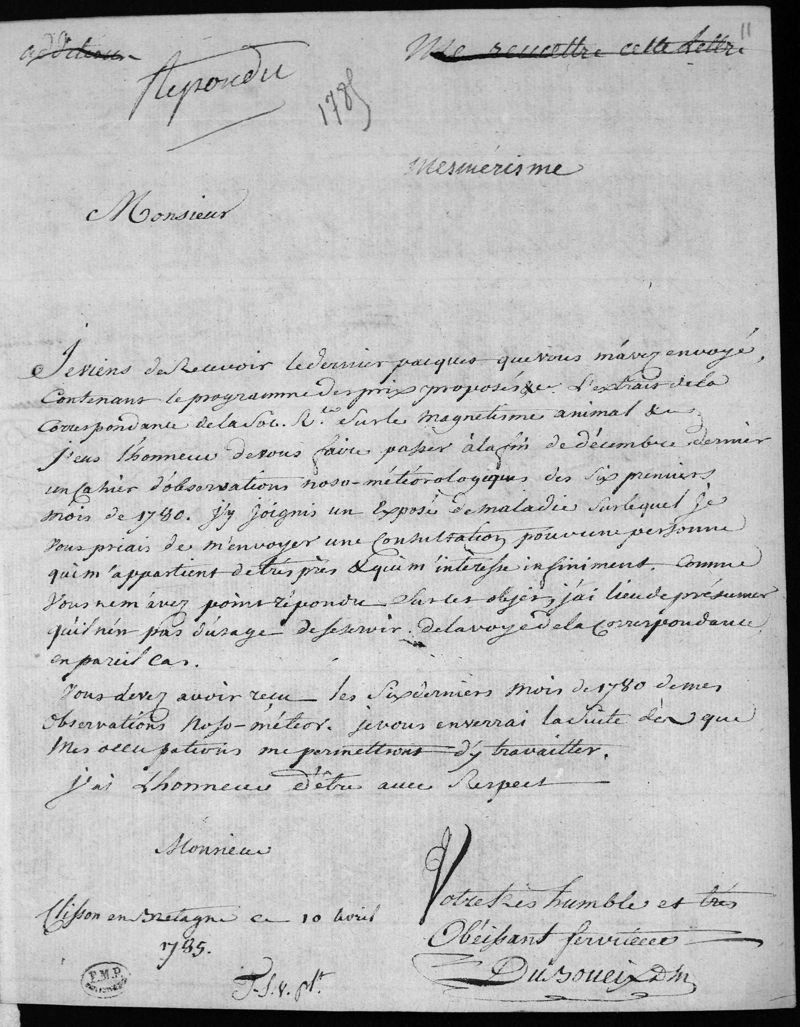 addition Me remettre cette lettre 11
Repondu
1785
Mesmérisme
Monsieur
Je viens de Recevoir le dernier pacquet que vous m'avez envoyé,
Contenant le programme des prix proposés &c. L'extrait de la
Correspondance de la Soc. R.le Sur le magnétisme animal &c
J'eus l'honneur de vous faire passer à la fin de décembre dernier
un Cahier d'observations noso-météorologiques des Six premiers
mois de 1780. j'y joignis un Exposé de maladie Sur lequel je
Vous priais de m'envoyer une Consultation pour une personne
qui m'appartient de très près & qui m'intéresse infiniment. Comme
Vous ne m'avez point répondu Sur cet objet, j'ai lieu de présumer
qu'il n'en pas d'usage de se servir de la voye de la Correspondance
en pareil cas.
Vous devez avoir recu les Six derniers mois de 1780 de mes
Observations Noso-météor. je vous enverrai la Suite dès que
Mes occupations me permettront d'y travailler.
j'ai L'honneur d'être avec Respect
Monsieur
Votre très humble et très
Clisson en Bretagne ce 10 Avril
Obéissant serviteur
1785.
Duboueix D m
F.M.P.
T.S.V. plt.